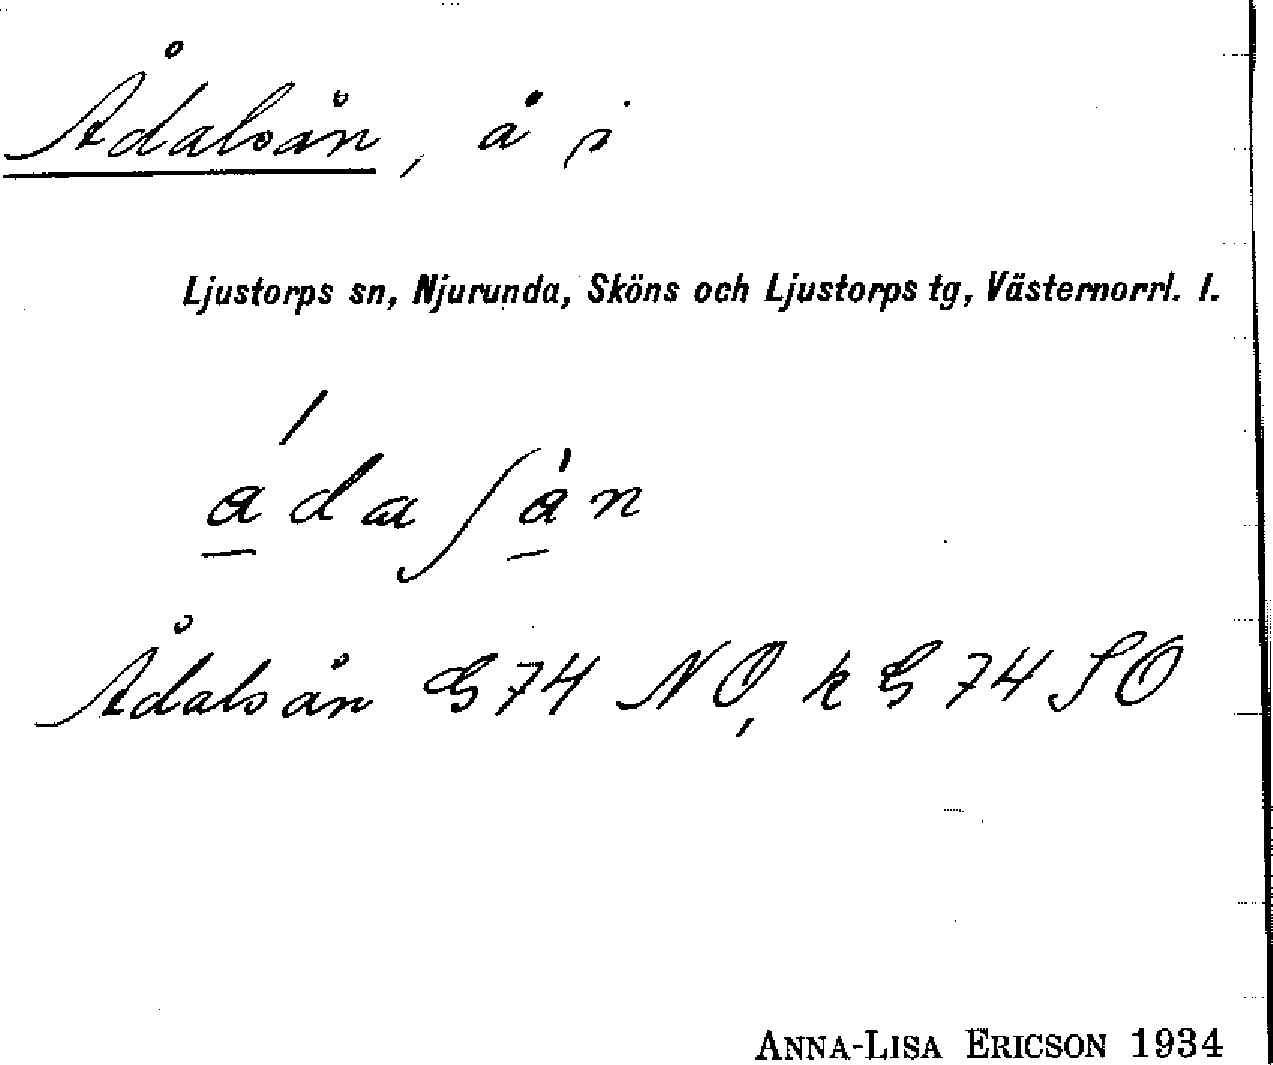 Ådalsån, å i
Ljustorps sn, Njurunda, Sköns och Ljustorps tg, Västernorrl. l.
Ådalsån G 74 NO, k G 74 SO
ANNA-LISA ERICSON 1934